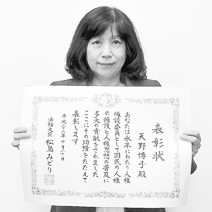 表彰状
天野博子殿
あなたは永年にわたり人権
擁護委員として国民の人権
の擁護と人権思想の普及に
多大の貢献をされました
ここにその功績をたたえて
表彰します
法務大臣 松島みどり